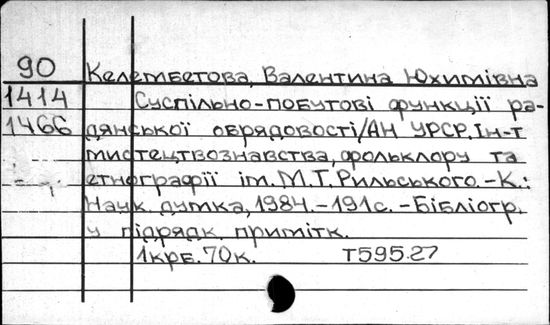 90 Келембетова, Валентина Юхимівна
1414 Суспільно-побутові функції ра-
1466 дянської обрядовості/АН УРСР. Ін-т
мистецтвознавства, фольклору та
етнографії ім. М.Т. Рильського.-К.:
Наук. думка, 1984.-191с.-Бібліогр.
у підрядк. примітк.
1крб.70к. Т595.27